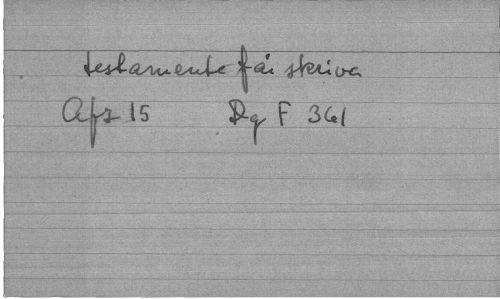 testamente få skriva
Afz 15 Dg F 361